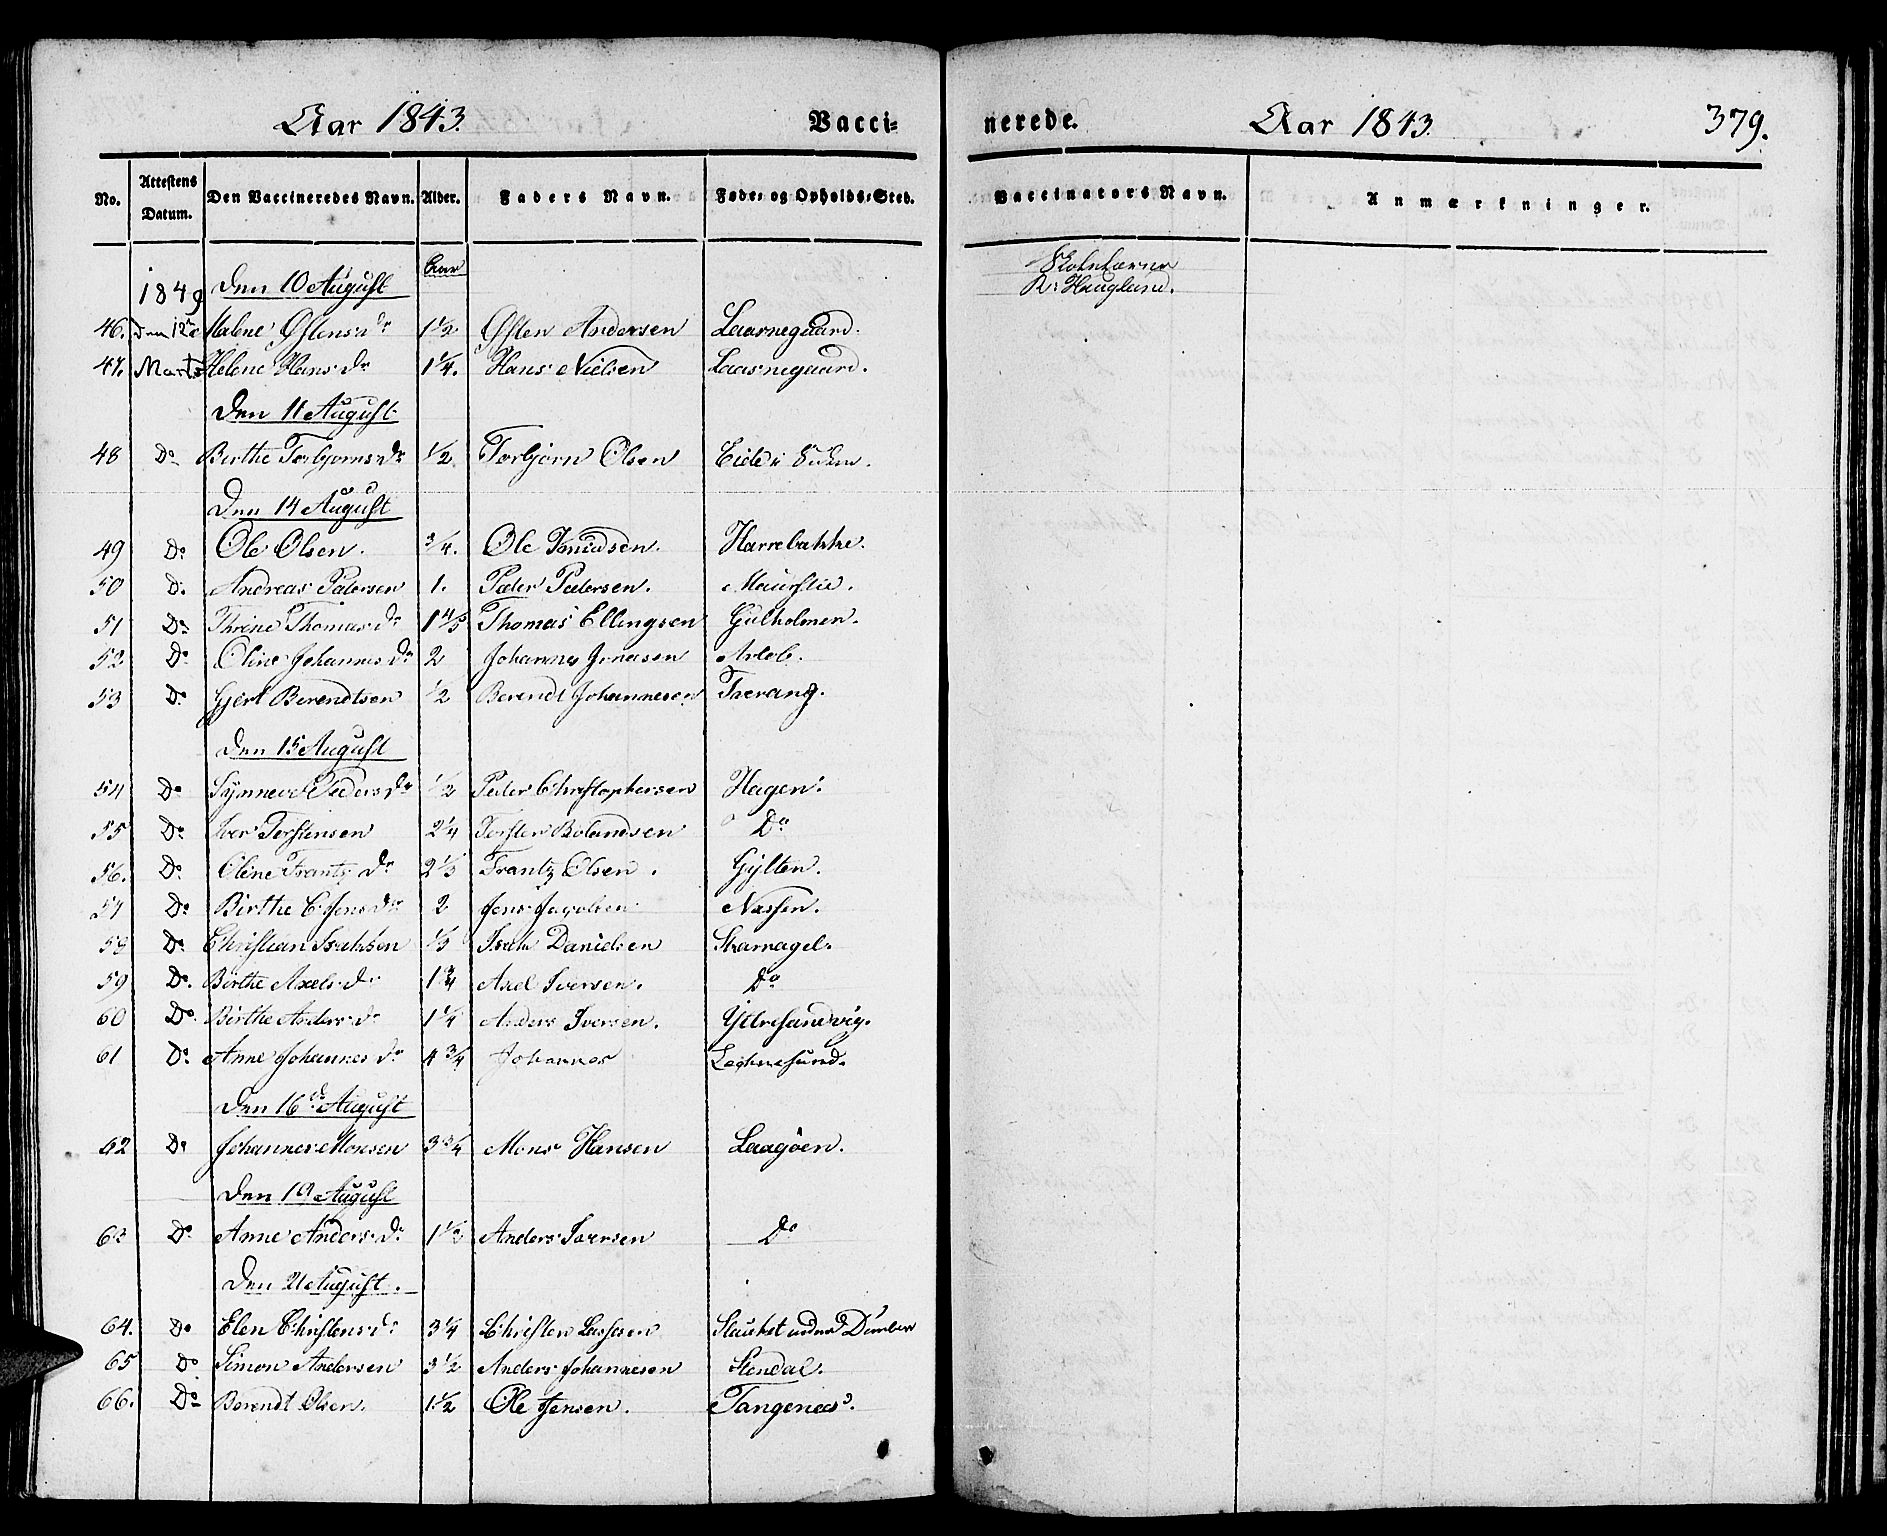 Aar 1843. Vacci-
nerede. Aar 1843. 379.
No. Attestens Datum. Den Vaccineredes Navn. Alder. Faders Navn. Føde- og Opholds-Sted. Vaccinators Navn. Anmærkninger.
1849 Den 10 August Aar
R. Hauglund.
46. den 12te Malene Østensdr 1 1/2. Østen Andersen Laarnegaard.
47. Marts Helene Hansdr 1 1/4. Hans Nielsen Laasnegaard.
Den 11 August.
48 Do Birthe Torbjørnsdr 1/2. Torbjørn Olsen Eide i
Den 14 August
49 Do Ole Olsen. 3/4. Ole Knudsen. Harrebakke.
50 Do Andreas Pedersen 1. Peder Pedersen. Maurstie.
51 Do Thrine Thomasdr 1 4/5 Thomas Ellingsen Gulholmen.
52 Do Oline Johannesdr 2 Johannes Jonasen
53 Do Gjert Berendtsen 1/2 Berendt Johannesen Tverang.
Den 15 August
54 Do Synneve Pedersdr 1/2 Peder Christophersen Hagen.
55 Do Iver Torstensen 2 1/4 Torsten Do
56. Do Oline Frantzdr 2 1/3 Frantz Olsen. Gylten.
57 Do Birthe C. Jensdr 2 Jens Jacobsen Næssen.
58 Do Christian Isaksen 1/3 Isak Danielsen Skarnagel.
59 Do. Birthe Axelsdr 1 3/4 Axel Iversen. Do
60 Do Birthe Andersdr 1 1/4 Anders Iversen. Yttresandvig.
61 Do. Anne Johannesdr 4 3/4 Johannes
Den 16de August
62 Do Johannes Monsen 3 3/4 Mons Hansen Laagøen.
Den 19 August
63 Do Anne Andersdr 1 1/2 Anders Iversen Do
Den 21 August.
64. Do Elen Christensdr 3 1/4 Christen Lassesen
65 Do Simon Andersen 3 1/2 Anders Johannesen Stendal.
66. Do Berendt Olsen. 1 1/2 Ole Jensen. Tangenæs.